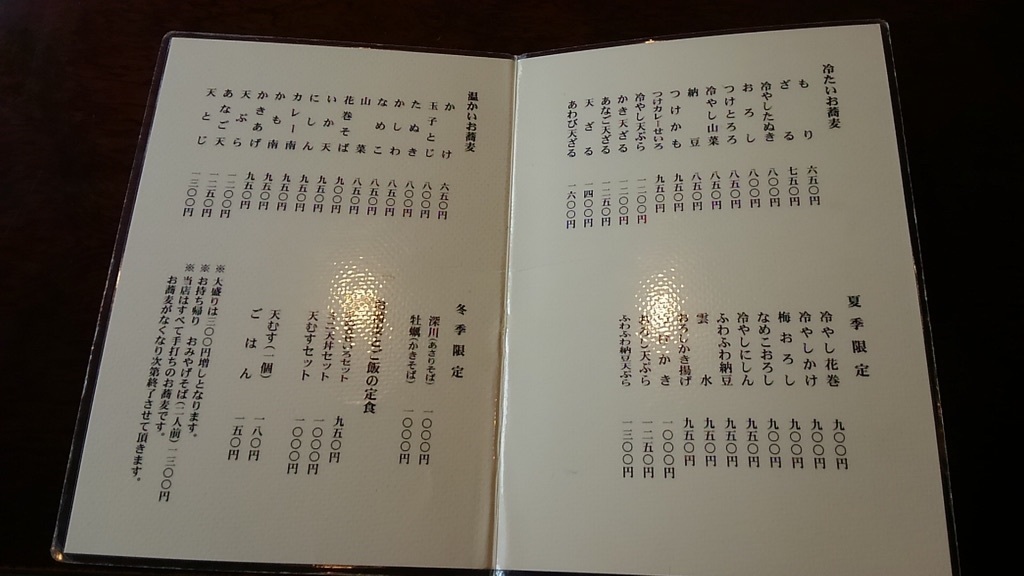 冷たいお蕎麦
もり 六五〇円
ざる 七五〇円
冷やしたぬき 八〇〇円
おろし 八〇〇円
つけとろろ 八五〇円
冷やし山菜 八五〇円
納豆 八五〇円
つけかも 九五〇円
つけカレーせいろ 九五〇円
冷やし天ぷら 一二〇〇円
かき天ざる 一二〇〇円
あなご天ざる 一二五〇円
天ざる 一四〇〇円
あわび天ざる 一六〇〇円
夏季限定
冷やし花巻 九〇〇円
冷やしかけ 九〇〇円
梅おろし 九〇〇円
なめこおろし 九〇〇円
冷やしにしん 九五〇円
ふわふわ納豆 九五〇円
雲水 九五〇円
おろしかき揚げ 九五〇円
かき 一〇〇〇円
し天ぷら 一二五〇円
ふわふわ納豆天ぷら 一三〇〇円
温かいお蕎麦
かけ 六五〇円
玉子とじ 八〇〇円
たぬき 八〇〇円
かしわ 八五〇円
なめこ 八五〇円
山菜 八五〇円
花巻そば 九〇〇円
いか天 九五〇円
にしん 九五〇円
カレー南 九五〇円
かも南 九五〇円
かきあげ 九五〇円
天ぷら 一二〇〇円
あなご天 一二五〇円
天とじ 一三〇〇円
冬季限定
深川(あさりそば) 一〇〇〇円
牡蠣(かきそば) 一〇〇〇円
とご飯の定食
いろセット 九五〇円
天丼セット 一〇〇〇円
天むすセット 一〇〇〇円
天むす(一個) 一八〇円
ごはん 一五〇円
※ 大盛りは三〇〇円増しとなります。
※ お持ち帰り おみやげそば(二人前)一三〇〇円
※ 当店はすべて手打ちのお蕎麦です。
お蕎麦がなくなり次第終了させて頂きます。